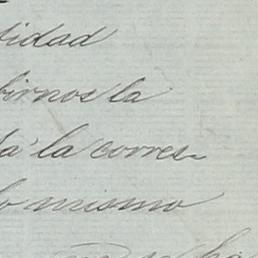 tidad
birnos la
da' la corres-
lo mismo